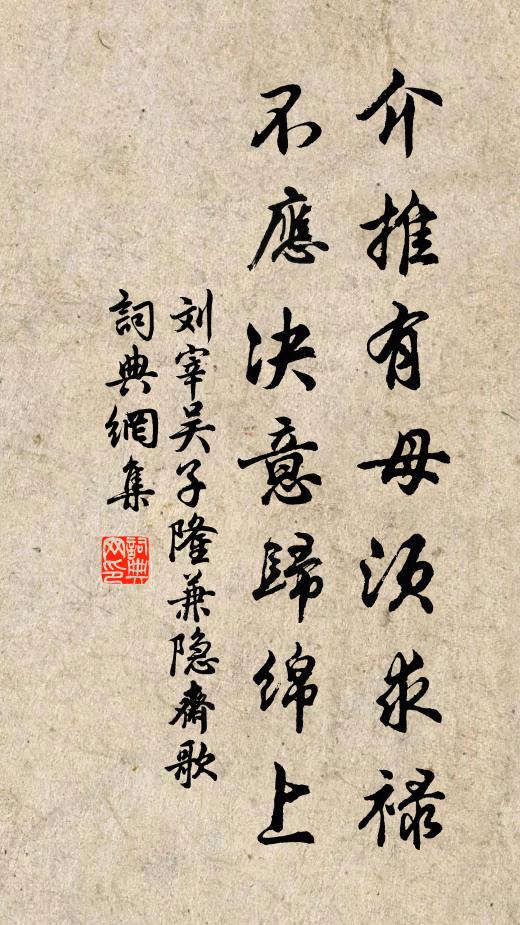 介推有母须求禄
不應决意歸绵上
刘宰吴子隆兼隐斋歌
詞典網集
詞典
网印